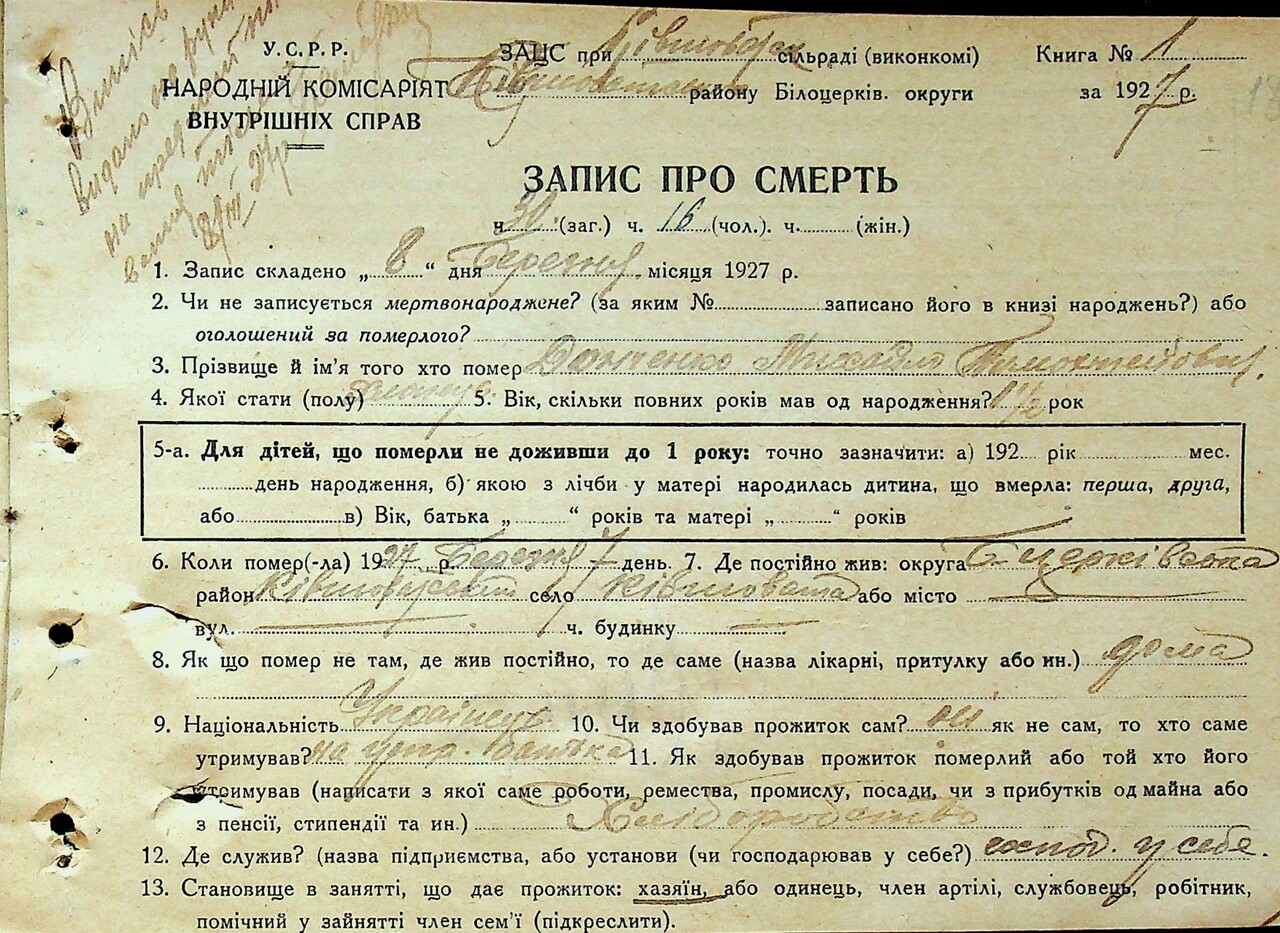 Випись
видано на руки
на
У.С.Р.Р. ЗАЦС при сільраді (виконкомі) Книга № 1
НАРОДНІЙ КОМІСАРІЯТ району Білоцерків. округи за 1927 р.
ВНУТРІШНІХ СПРАВ
ЗАПИС ПРО СМЕРТЬ
ч 30 (заг.) ч. 16 (чол.). ч. (жін.)
1. Запис складено „ 8 “ дня Березня місяця 1927 р.
2. Чи не записується мертвонароджене? (за яким № записано його в книзі народжень?) або
оголошений за померлого?
3. Прізвище й ім'я того хто помер Михайло Тимохтейович.
4. Якої стати (полу) 5. Вік, скільки повних років мав од народження? 1 1/2 рок
5-а. Для дітей, що померли не доживши до 1 року: точно зазначити: а) 192 рік мес.
день народження, б) якою з лічби у матері народилась дитина, що вмерла: перша, друга,
або в) Вік, батька „ “ років та матері „ “ років
6. Коли помер(-ла) 1927 р. Березня 7 день. 7. Де постійно жив: округа Б Церківська
район село Ківшовата або місто —
вул. — ч. будинку —
8. Як що помер не там, де жив постійно, то де саме (назва лікарні, притулку або ин.) дома
9. Національність Українець 10. Чи здобував прожиток сам? ні як не сам, то хто саме
утримував? на утр. батька 11. Як здобував прожиток померлий або той хто його
утримував (написати з якої саме роботи, ремества, промислу, посади, чи з прибутків од майна або
з пенсії, стипендії та ин.) Хліборобство
12. Де служив? (назва підприємства, або установи (чи господарював у себе?) господ. у себе.
13. Становище в занятті, що дає прожиток: хазяїн, або одинець, член артілі, службовець, робітник,
помічний у зайнятті член сем'ї (підкреслити).